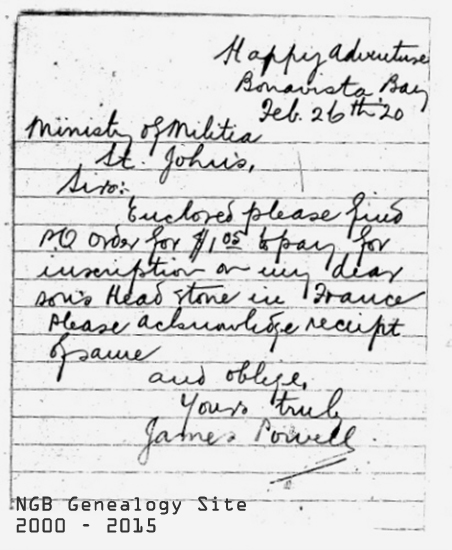 Happy Adventure
Bonavista Bay
Feb. 26th 20
Ministry of Militia
St. John's,
Sirs:
Enclosed please find
PO order for $1.05 to pay for
inscription on my dear
son's Head stone in France
Please acknowledge receipt
of same
and oblige,
Yours truly
James Powell
NGB Genealogy Site
2000 - 2015